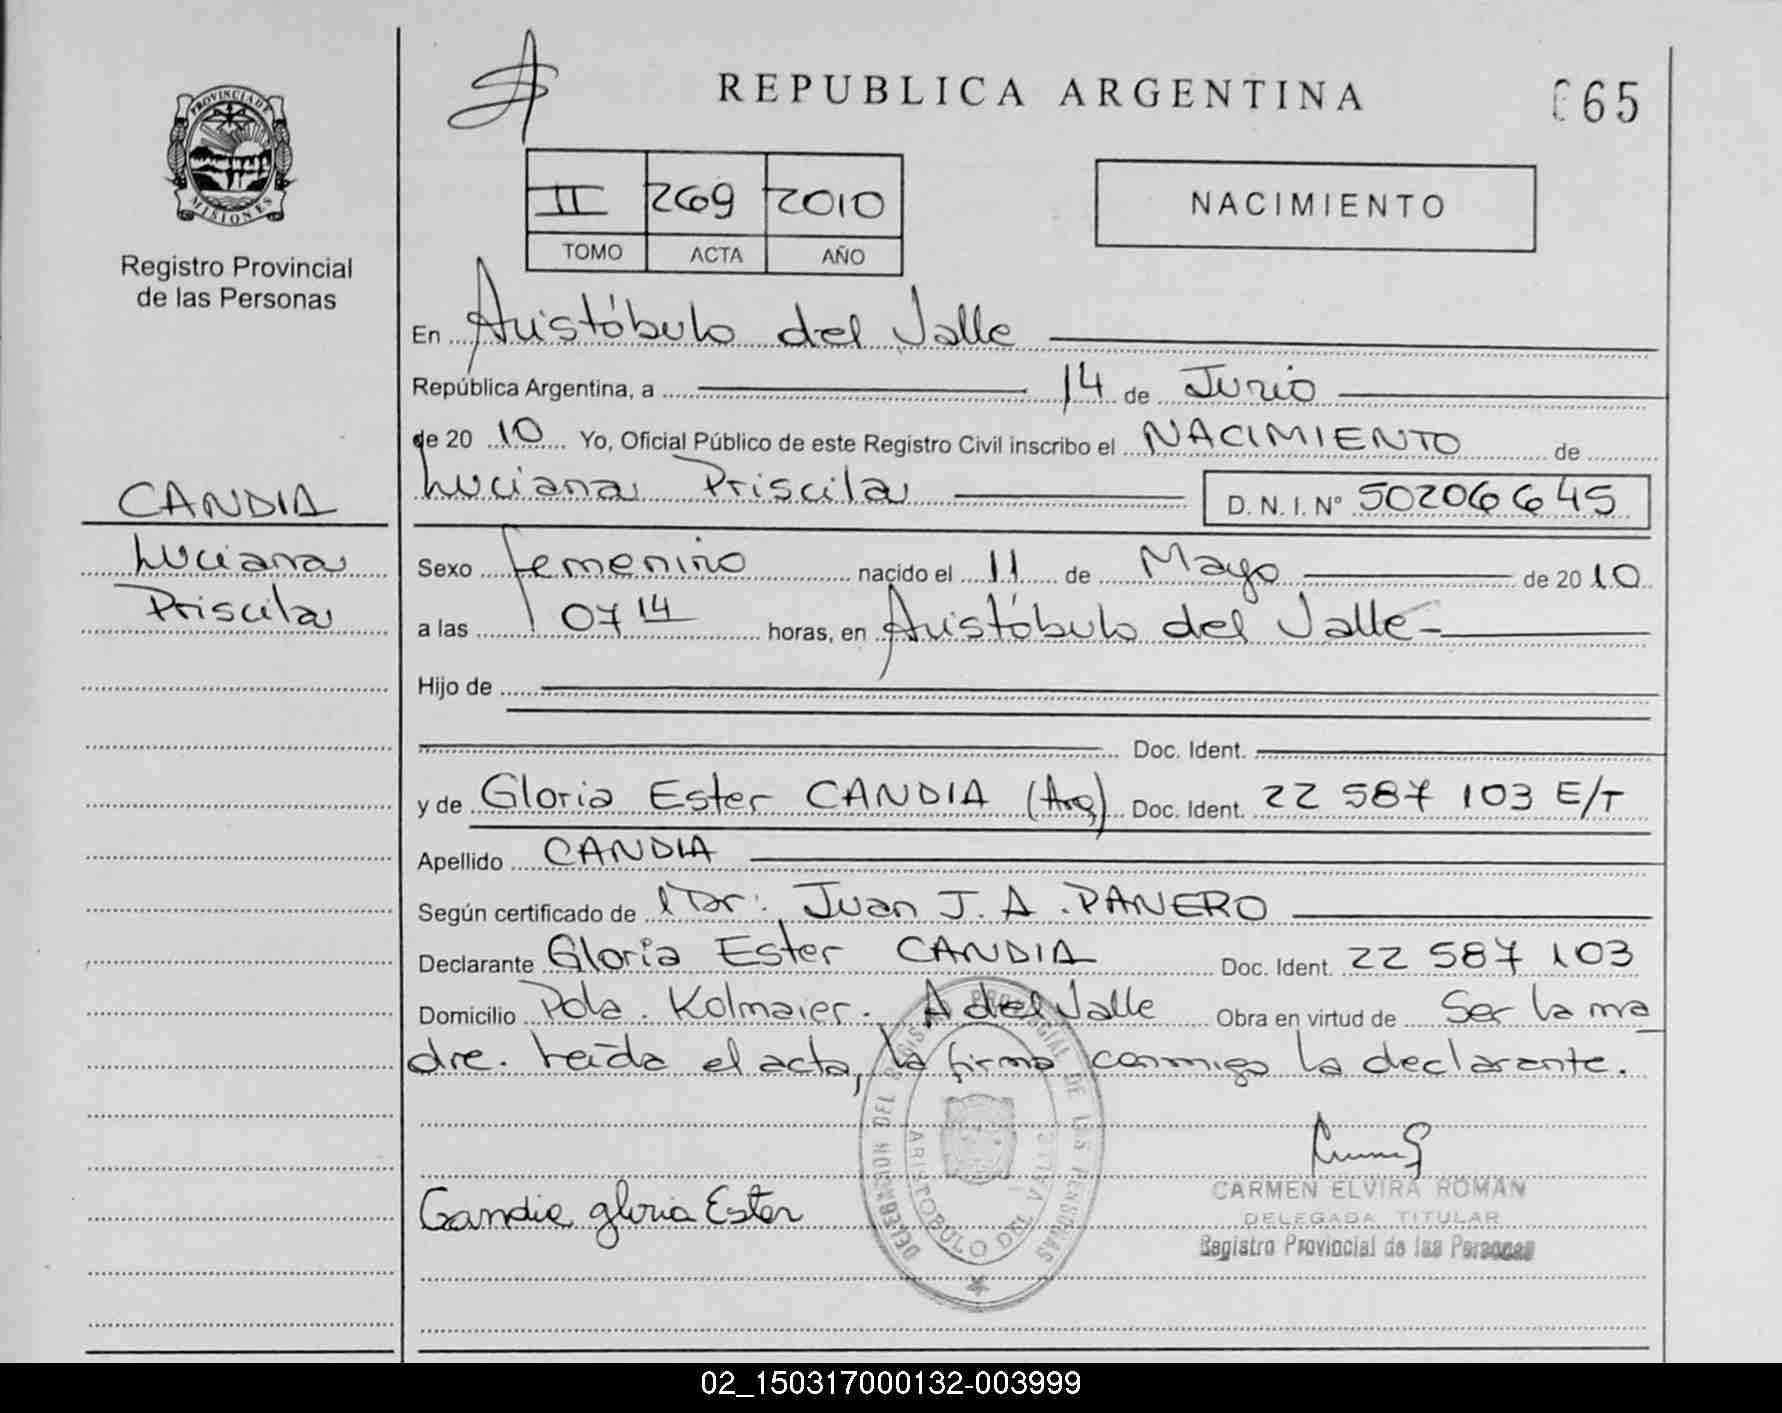 REPUBLICA ARGENTINA
065
PROVINCIA DE MISIONES
Registro Provincial
de las Personas
II 269 2010
TOMO ACTA AÑO
NACIMIENTO
En Aristóbulo del Valle
República Argentina, a 14 de Junio
de 20 10 Yo, Oficial Público de este Registro Civil inscribo el NACIMIENTO de
Luciana Priscila D. N. I. Nº 50206645
CANDIA
Luciana
Priscila
Sexo femenino nacido el 11 de Mayo de 20 10
a las 07 14 horas, en Aristóbulo del Valle-
Hijo de
Doc. Ident.
y de Gloria Ester CANDIA (Arg) Doc. Ident. 22 587 103 E/T
Apellido CANDIA
Según certificado de l Dr: Juan J. A. PANERO
Declarante Gloria Ester CANDIA Doc. Ident. 22 587 103
Domicilio Pdla. Kolmaier. A del Valle Obra en virtud de Ser la ma
dre. Leída el acta, la firma conmigo la declarante.
DELEGACION DEL REGISTRO PROVINCIAL DE LAS PERSONAS
ARISTOBULO DEL VALLE
Candia gloria Ester
CARMEN ELVIRA ROMAN
DELEGADA TITULAR
Registro Provincial de las Personas
02_150317000132-003999